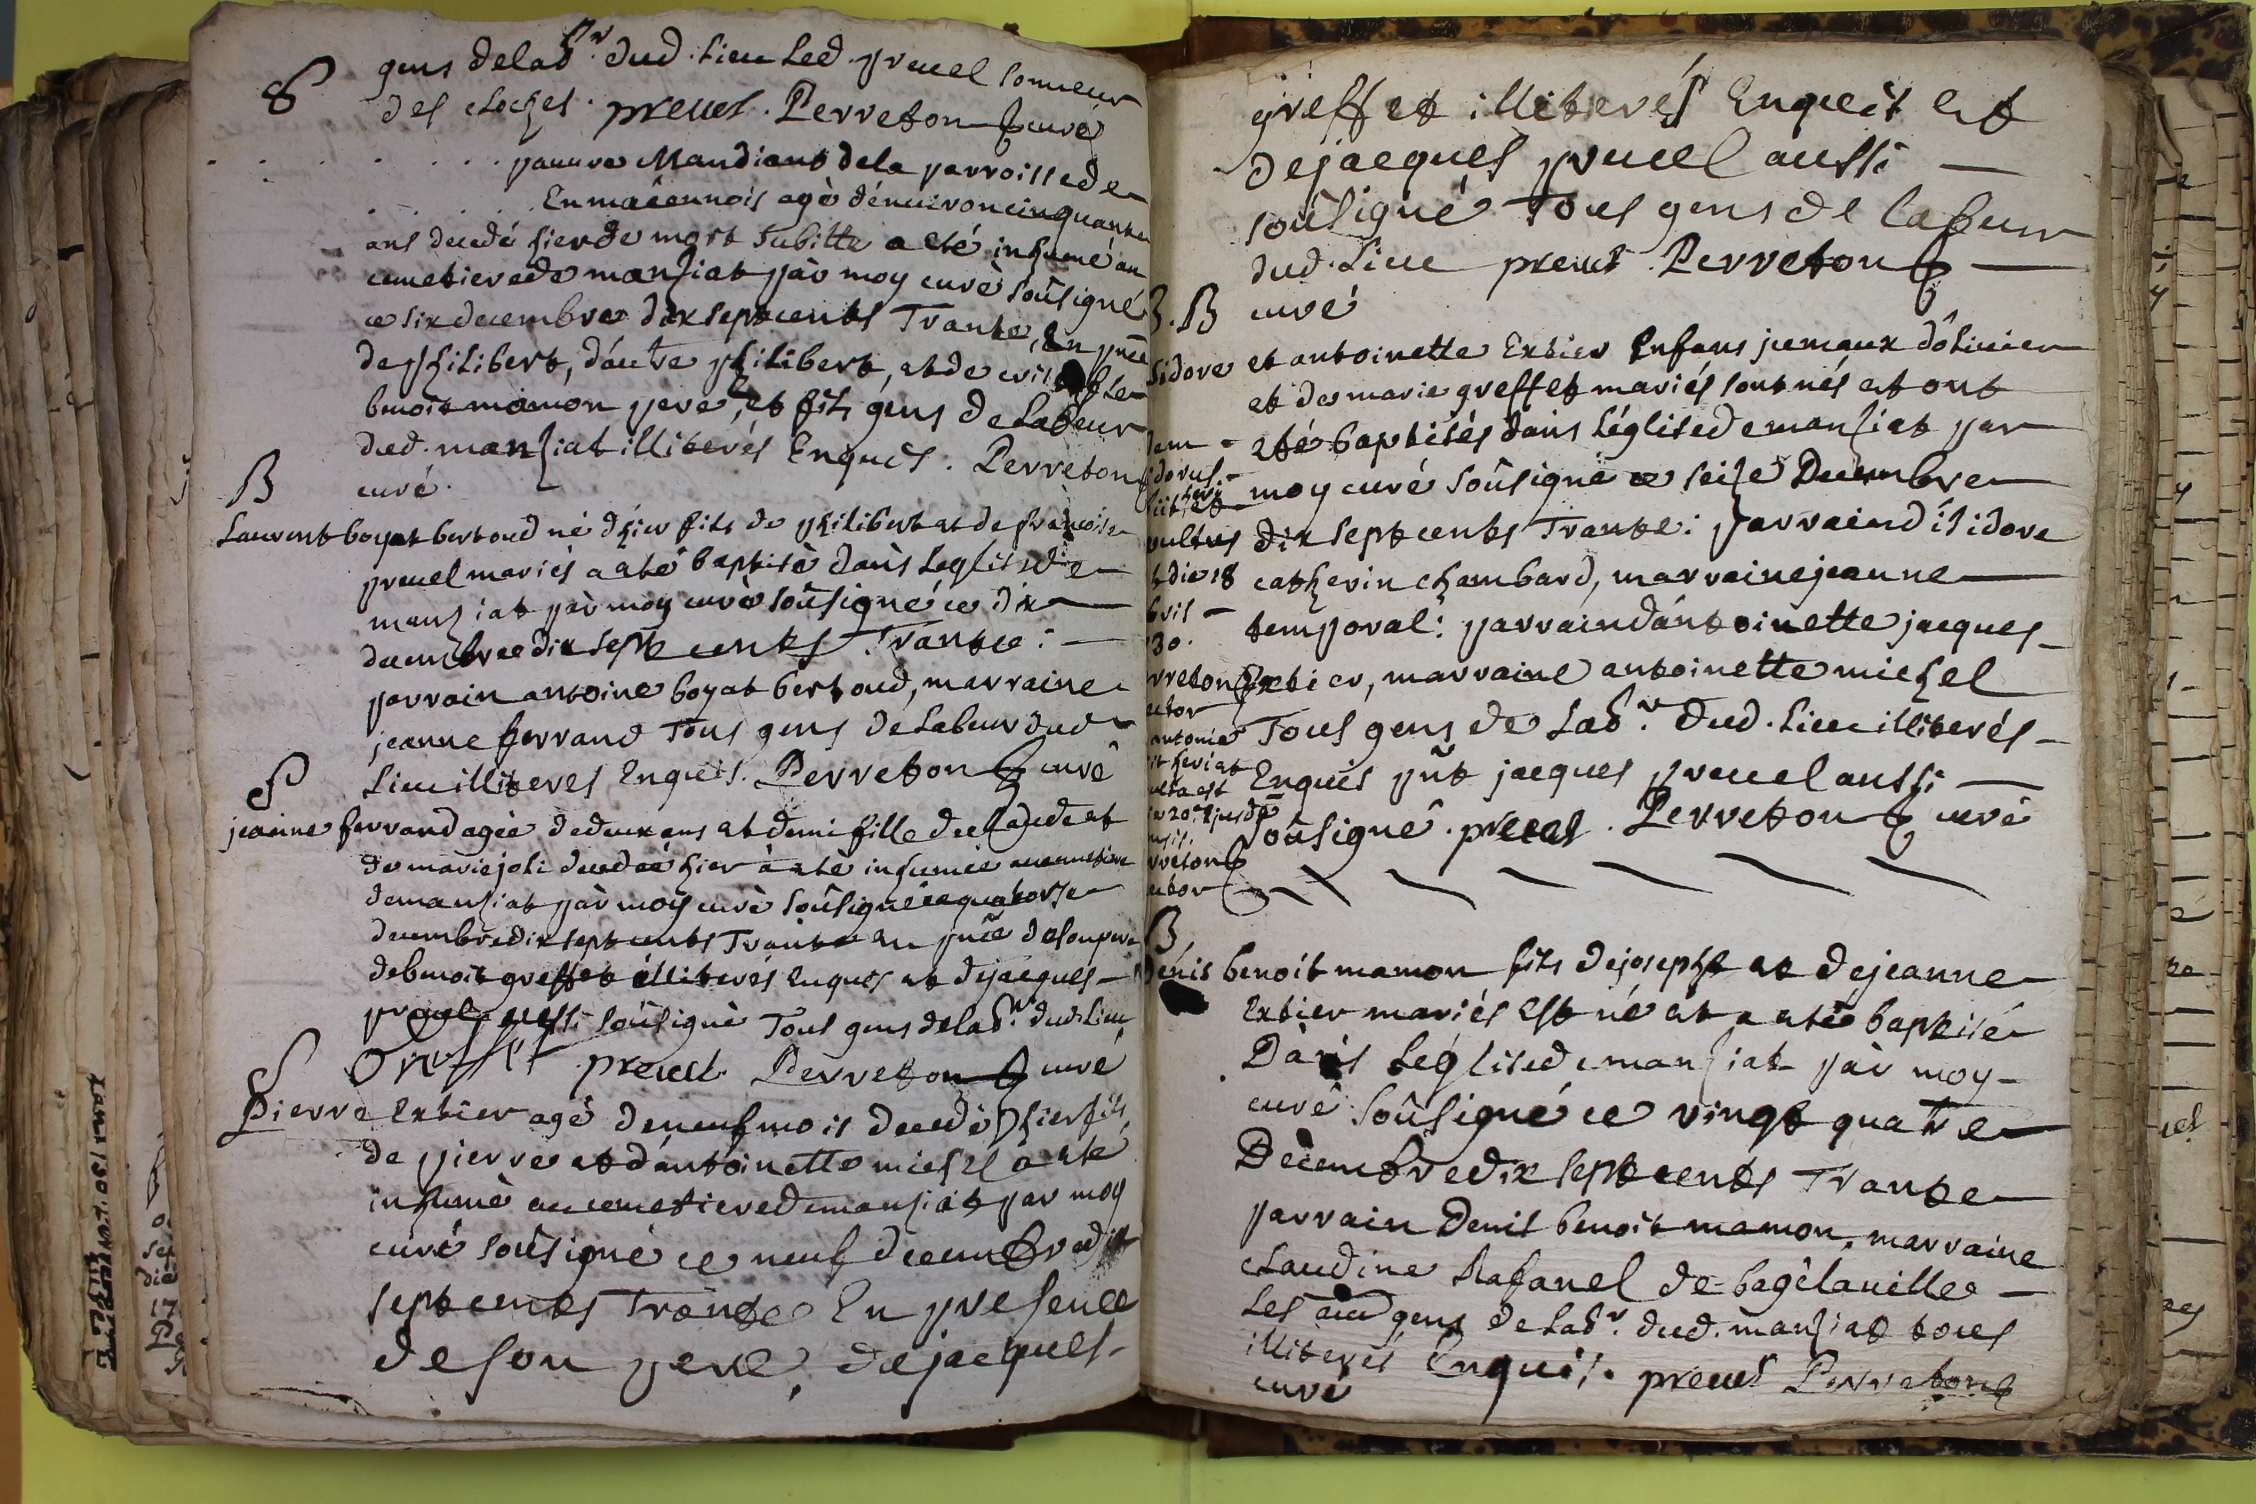 gens de lab.r dud. lieu led. preuel sonneur
des cloches. preuel. Perreton curé
S
. . . . . . . pauure Mandiant de la parroisse de
. . . . . . . En macônnois agè dénuiron cinquante
ans decedé hier de mort subitte a eté inhumé au
cemetiere de manziat pàr moy curè soûsigné
ce six decembre dix sept cents Trante, En pñce
de philibert, dáutre philibert, et de
benoit mamon pere, et fils gens de Labeur
dud. manziat illiterés Enquis. Perreton
curé.
B
Laurent boyat bertoud né d'hier fils de philibert et de françoise
preuel mariés a eté baptisè dans leglise de
manziat pàr moy curè soûsigné ce dix
decembre dix sept cents Trante:
parrain antoine boyat bertoud, marraine
jeanne ferrand Tous gens de Labeur dud
Lieu illiteres Enquis. Perreton curé
S
jeanne ferrand agée de deux ans et demi fille de et
de marie joli decedeé hier à eté inhumée au cemetiere
de manziat pàr moy curè soûsigné ce quatorse
decembre dix sept cents Trante En pñce de son pere
de benoit greffet illiterés Enquis et de jacques
preuel aussi soûsignè Tous gens de lab.r dud. Lieu
Greffet preuel Perreton curé
S
Pierre Extier agé de neuf mois decedé hier fils
de pierre et dántoinette michel a eté
inhumè au cemetiere de manziat par moy
curé soûsigné ce neuf decembre dix
sept cents Trante En presence
de son pere, de jacques
greffet illiterés Enquis et
de jacques preuel aussi
soûsigné Tous gens de labeur
dud. Lieu preuel Perreton
curé
B. B
isidore et antoinette Extier Enfans jumaux dôliuier
et de marie greffet mariés sont nés et ont
eté baptisés dans Léglise de manziat par
moy curé soûsigné ce seize Decembre
dix sept cents Trante: parrain d'isidore
catherin chambard, marraine jeanne
temporal: parrain dántoinette jacques
Extier, marraine antoinette michel
Tous gens de Lab.r dud. Lieu illiterés
Enquis pñt jacques preuel aussi
soûsigné. preuel. Perreton curé
B
Denis benoit mamon fils de joseph et de jeanne
Extier mariés Est né et a eté baptisé
Dans Léglise de manziat pàr moy
curé soûsigné ce vingt quatre
Decembre dix sept cents Trante
parrain Denis benoit mamon, marraine
claudine Rafanel de bagélauille
Les gens de Lab.r dud. manziat tous
illiterés Enquis. preuel Perreton
curé